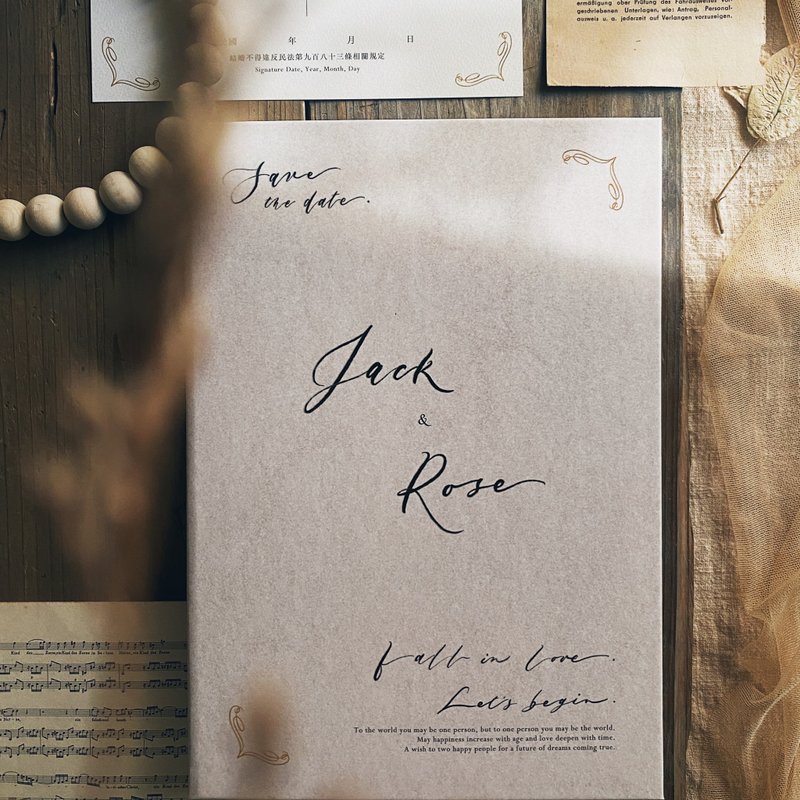 年 月 日
結婚不得違反民法第九百八十三條相關規定
Signature Date, Year, Month, Day
ermäßigung ober Prüfung des Fahrausweises vor-
geschriebenen Unterlagen, wie: Antrag, Personal-
ausweis u. a. jederzeit auf Verlangen vorzuzeigen.
Save
the date.
Jack
&
Rose
Fall in love.
Let's begin.
To the world you may be one person, but to one person you may be the world.
May happiness increase with age and love deepen with time.
A wish to two happy people for a future of dreams coming true.